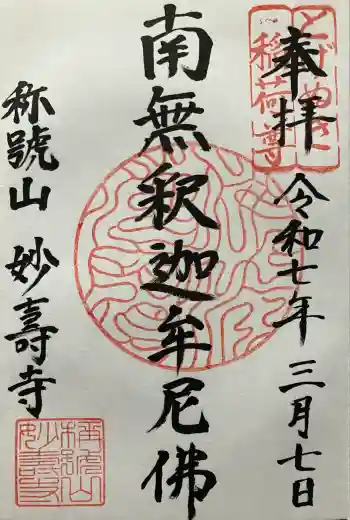 奉拝
とげぬき
稲荷尊
令和七年 三月七日
南無釈迦牟尼佛
称號山 妙壽寺
称號山
妙壽寺